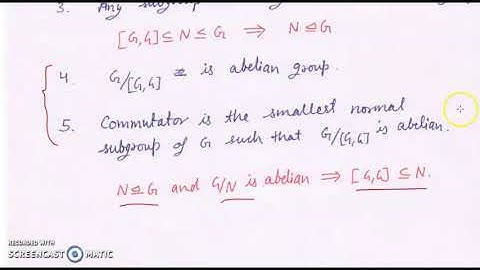 3. Any subgroup
[G,G] ⊆ N ≤ G ⟹ N ⊴ G
4. G/[G,G] is abelian group.
5. Commutator is the smallest normal
subgroup of G such that G/[G,G] is abelian.
N ⊴ G and G/N is abelian ⟹ [G,G] ⊆ N.
RECORDED WITH
SCREENCAST MATIC